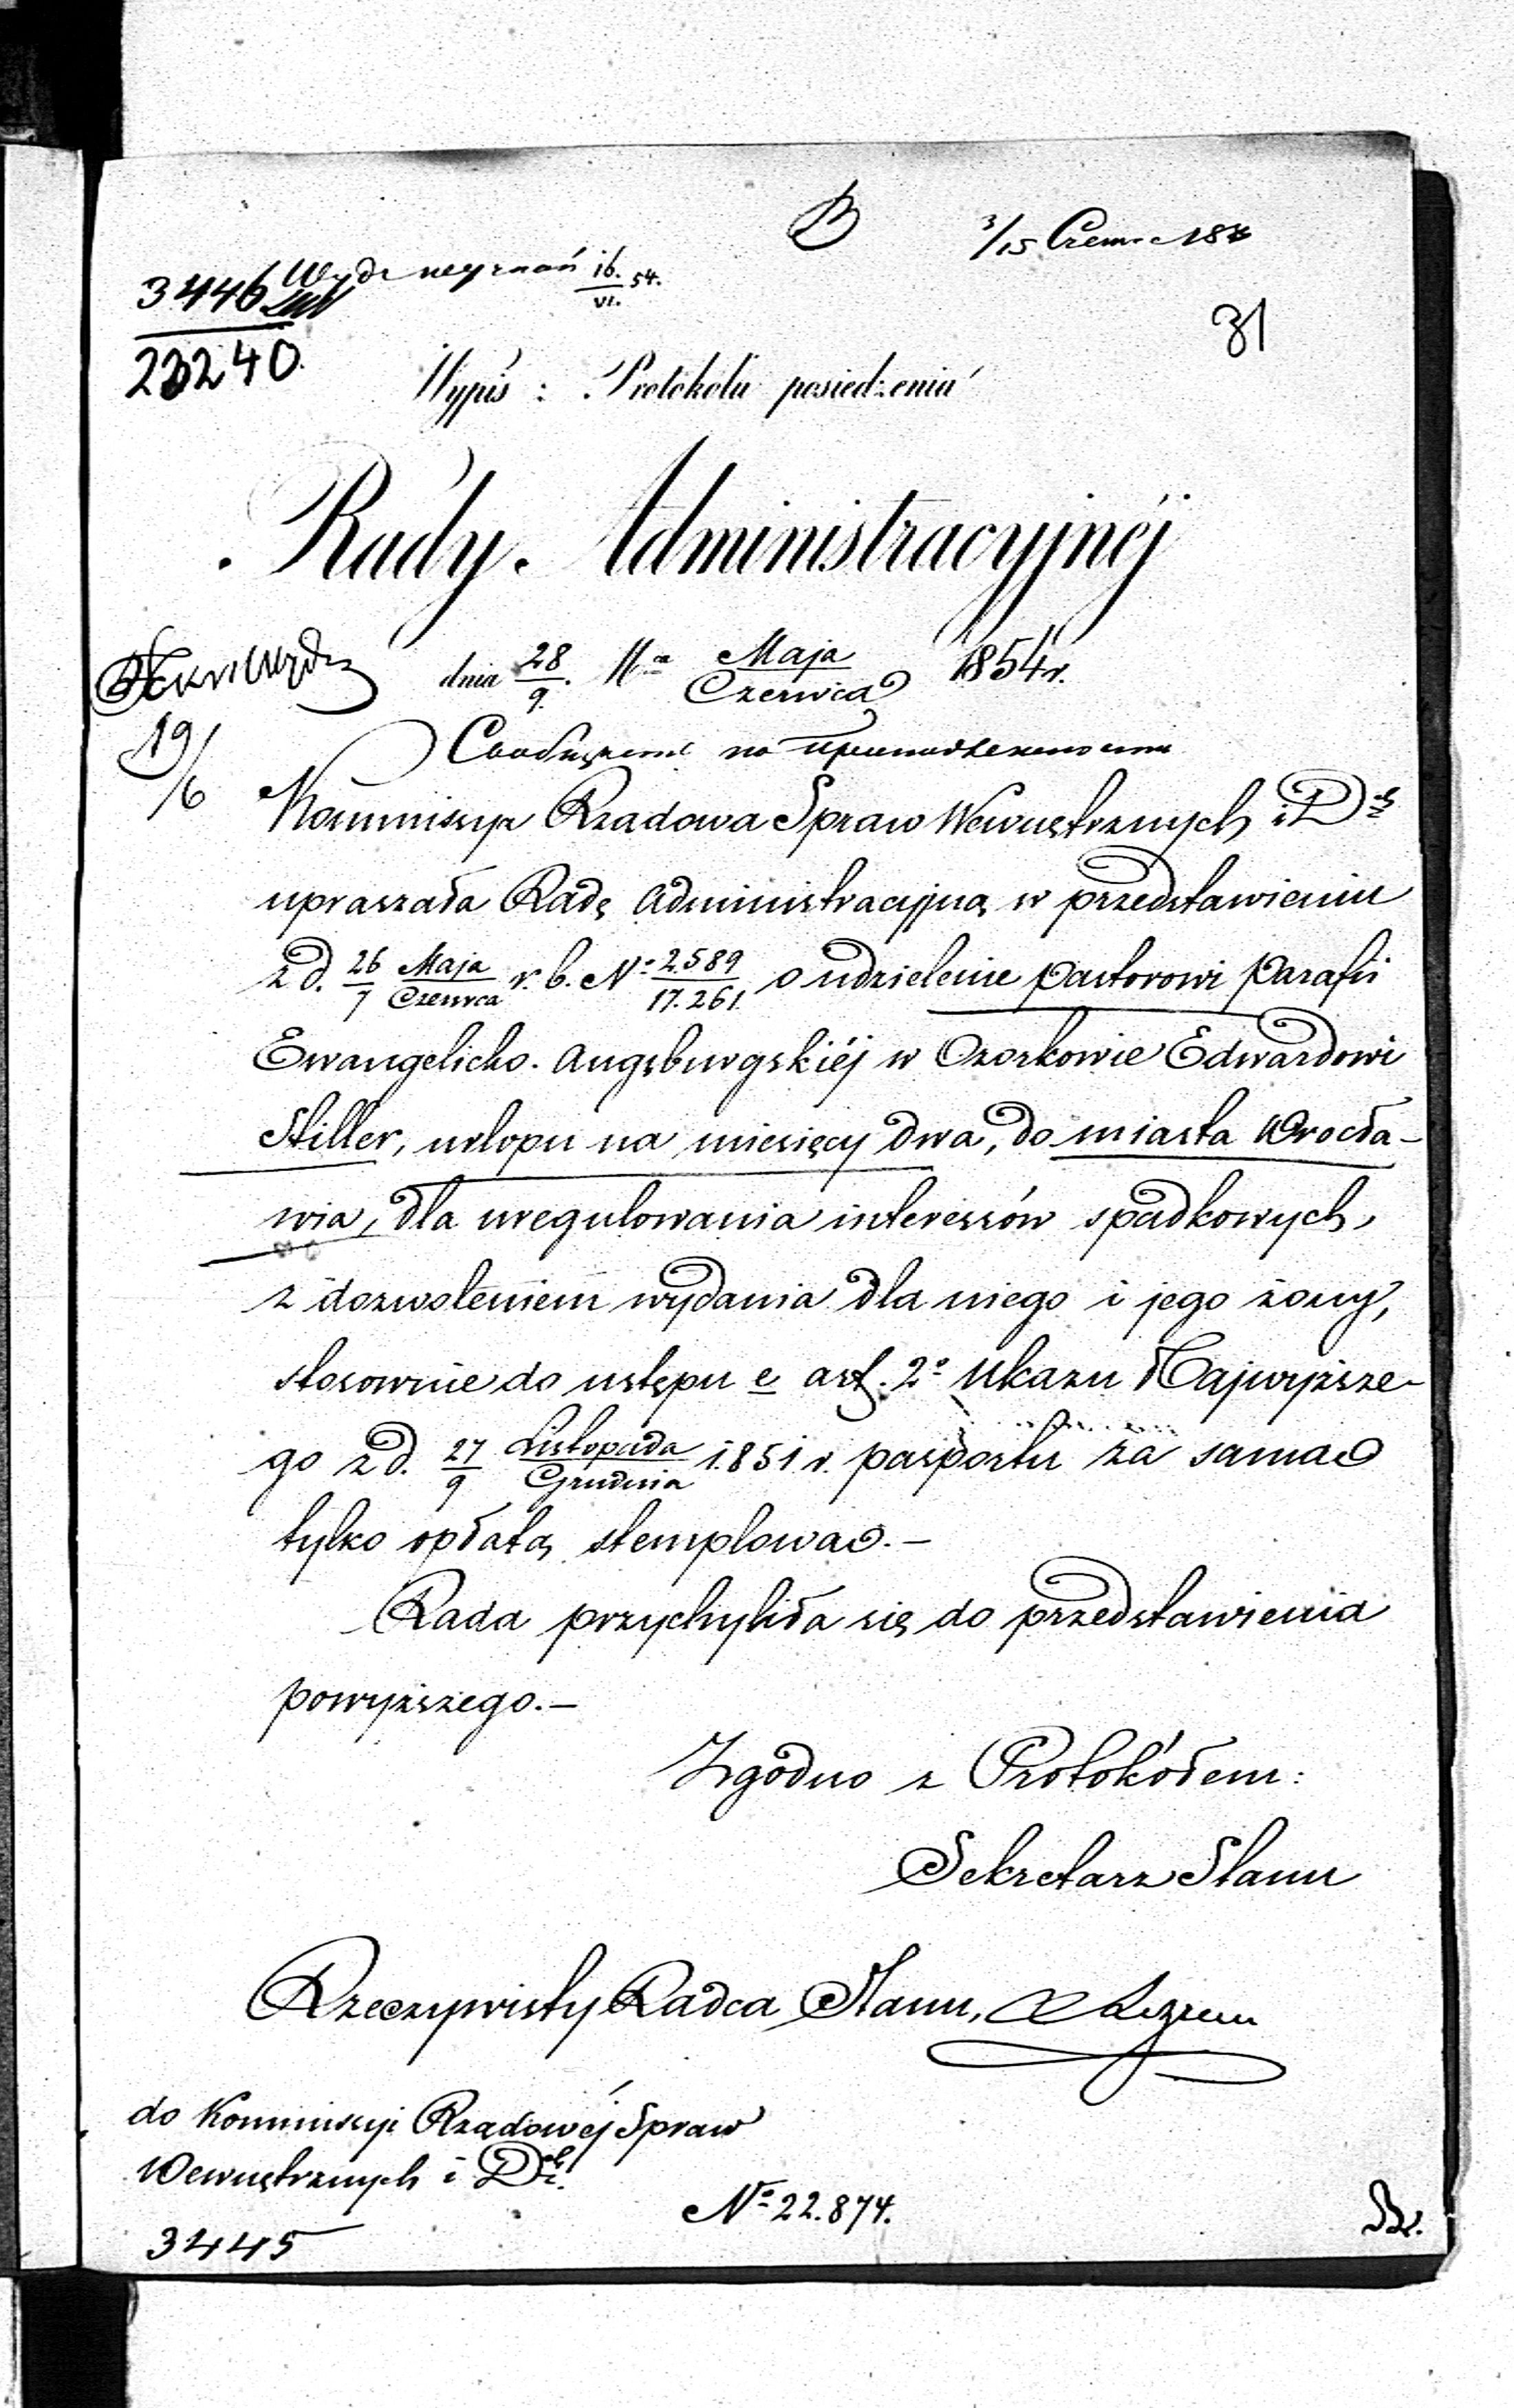 B
3/15 Czerwc 185
3446
Wydz wyznań 16./VI. 54.
23240
31
Wypis z Protokółu posiedzenia
Rady Administracyjnéj
dnia 28/9. Mca Maja/Czerwca 1854 r.
19/6
Kommissya Rządowa Spraw Wewnętrznych i D.
upraszała Radę Administracyjną w przedstawieniu
z d. 26/7 Maja/Czerwca r. b. No 2589/17.261. o udzielenie pastorowi Parafii
Ewangelicko-Augsburgskiéj w Ozorkowie Edwardowi
Stiller, urlopu na miesięcy dwa, do miasta Wrocła-
wia, dla uregulowania interessów spadkowych,
z dozwoleniem wydania dla niego i jego żony,
stosownie do ustępu e art. 2o Ukazu Najwyższe-
go z d. 27/9 Listopada/Grudnia 1851 r. pasportu za samą
tylko opłatą stemplową.—
Rada przychyliła się do przedstawienia
powyższego.—
Zgodno z Protokółem:
Sekretarz Stanu
Rzeczywisty Radca Stanu,
do Kommissyi Rządowéj Spraw
Wewnętrznych i D.
No 22.874.
3445